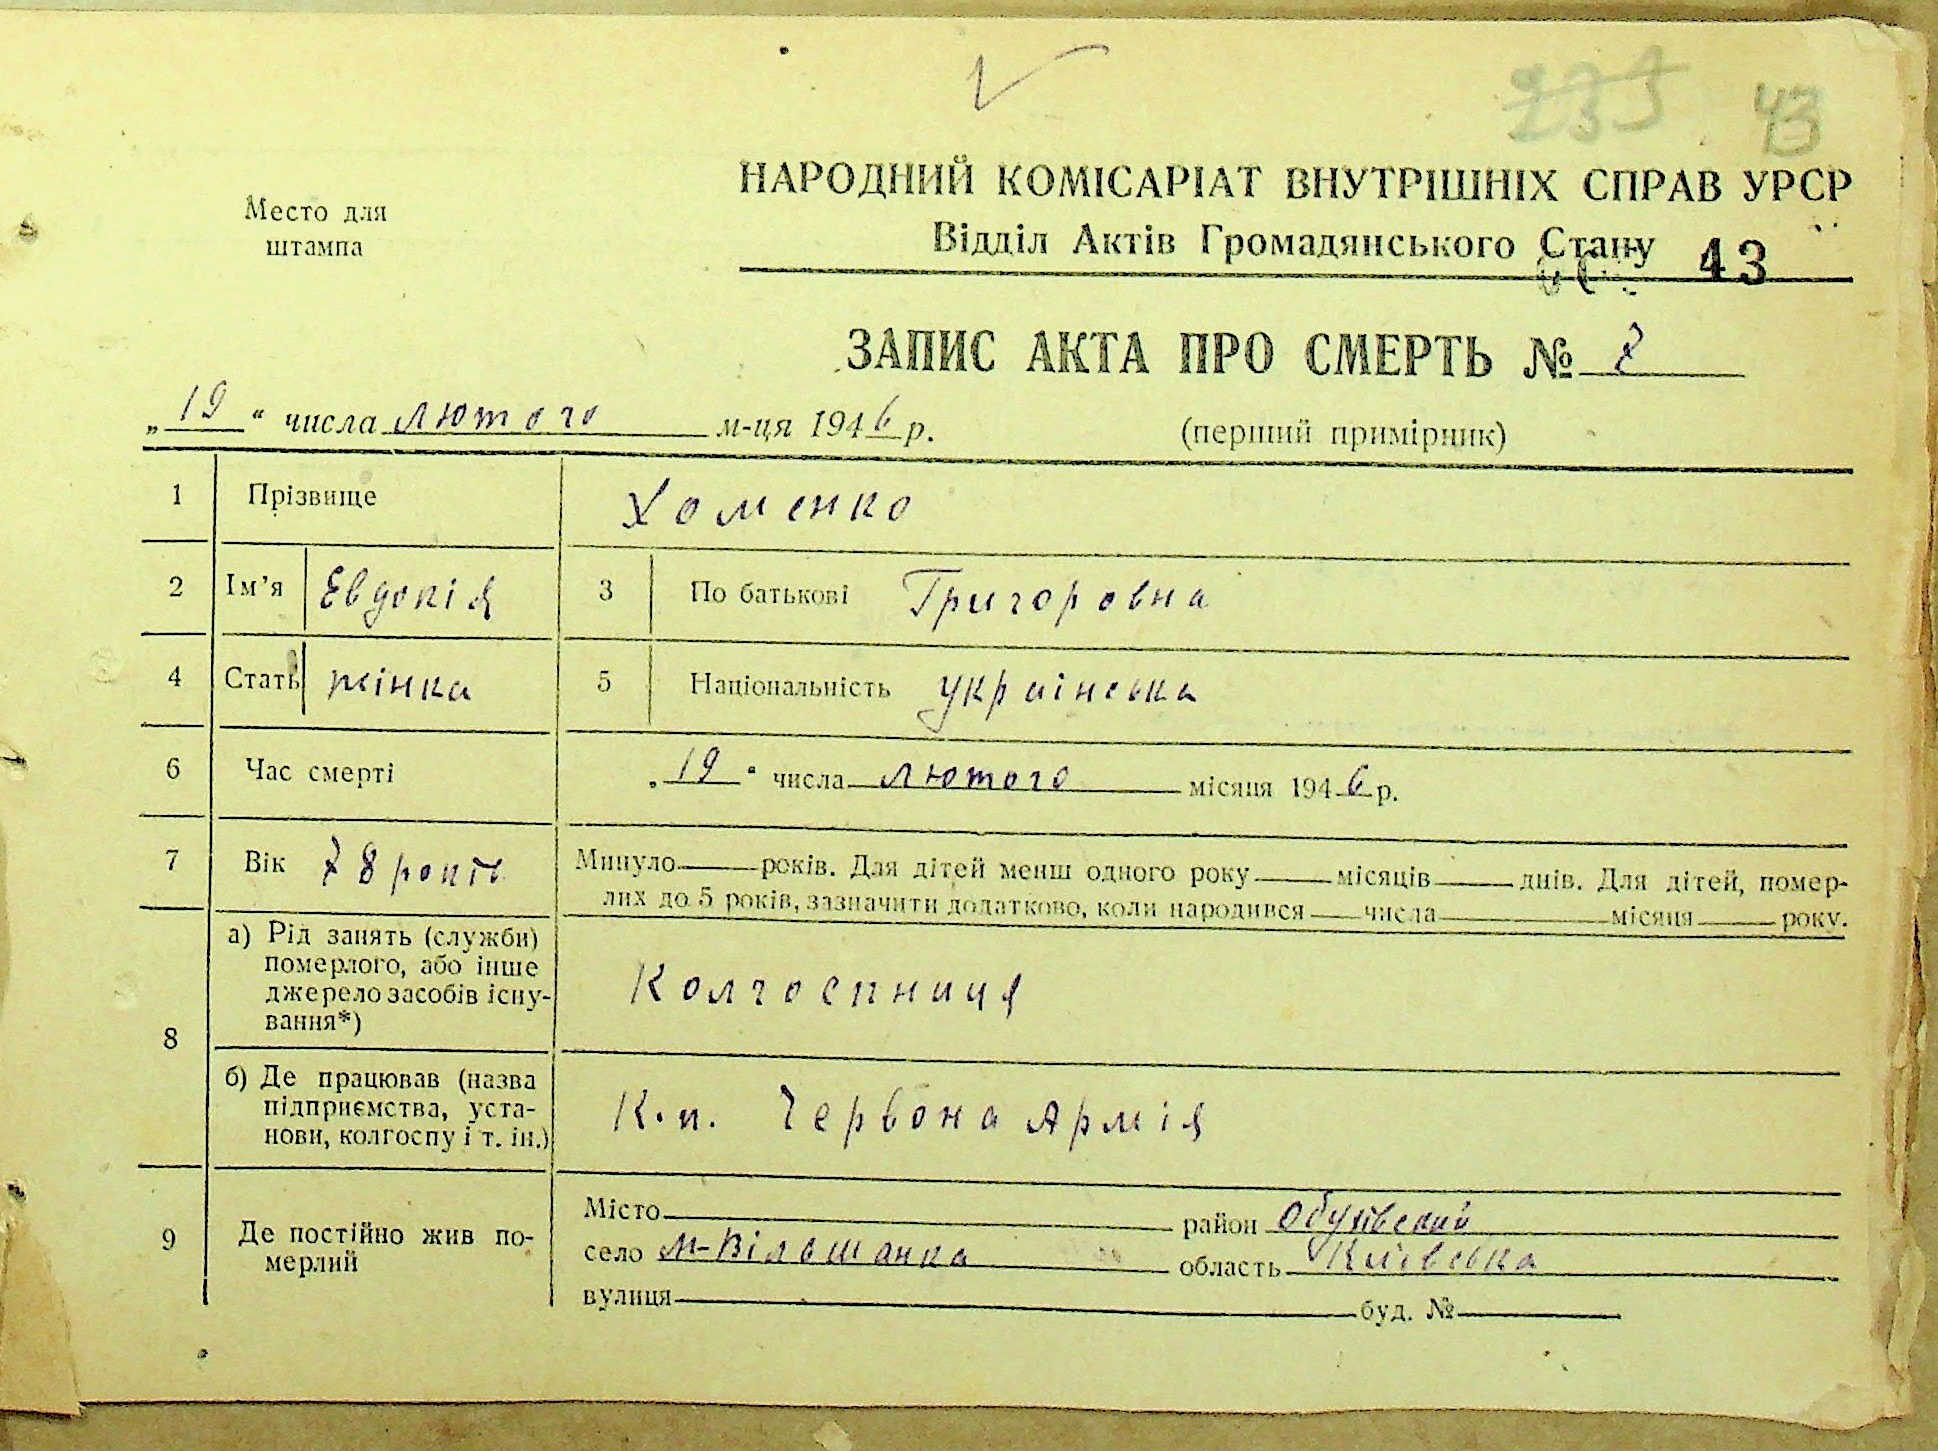 43
Место для
штампа
НАРОДНИЙ КОМІСАРІАТ ВНУТРІШНІХ СПРАВ УРСР
Відділ Актів Громадянського Стану 43
ЗАПИС АКТА ПРО СМЕРТЬ № 7
„19“ числа лютого м-ця 1946 р. (перший примірник)
1 Прізвище Хоменко
2 Ім’я Евдокія 3 По батькові Григоровна
4 Стать жінка 5 Національність українська
6 Час смерті „19“ числа лютого місяця 1946 р.
7 Вік 78 років Минуло років. Для дітей менш одного року місяців днів. Для дітей, помер-
лих до 5 років, зазначити додатково, коли народився числа місяця року.
8 а) Рід занять (служби)
померлого, або інше
джерело засобів існу-
вання*)
Колгоспниця
б) Де працював (назва
підприємства, уста-
нови, колгоспу і т. ін.)
К.п. Червона Армія
9 Де постійно жив по-
мерлий
Місто район Обухівский
село М-Вільшанка область Київська
вулиця буд. №